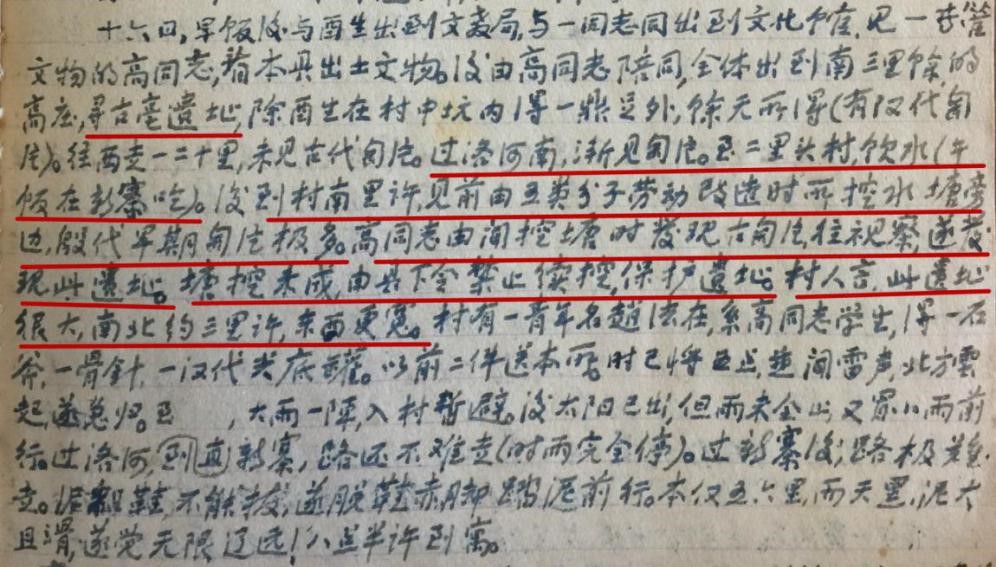 十六日,早饭後与酉生出到文教局,与一同志同出到文化馆,见一专管
文物的高同志,看本县出土文物。後由高同志陪同,全体出到南三里馀的
高庄,寻古亳遗址,除酉生在村中坑内得一鼎足外,馀无所得(有汉代匋
片)。往西走一二十里,未见古代匋片。过洛河南,渐见匋片。至二里头村,饮水(午
饭在新寨吃)。後到村南里许,见前由五类分子劳动改造时所挖水塘旁
边,殷代早期匋片极多。高同志由闻挖塘时发现古匋片,往视察,遂发
现此遗址。塘挖未成,由县下令禁止续挖,保护遗址。村人言,此遗址
很大,南北约三里许,东西更宽。村有一青年名趙法在,系高同志学生,得一石
斧,一骨針,一汉代尖底罐。以前二件送本所。时已将五点,速闻雷声,北方雲
起,遂急归。至 ,大雨一陣,入村暫避。後太阳已出,但雨未全止,又冒小雨前
行。过洛河,到直新寨,路还不难走(时雨完全停)。过新寨後,路极难
走。泥粘鞋,不能拔,遂脱鞋赤脚踏泥前行。本仅五六里,而天黑,泥大
且滑,遂觉无限辽远!八点半许到寓。